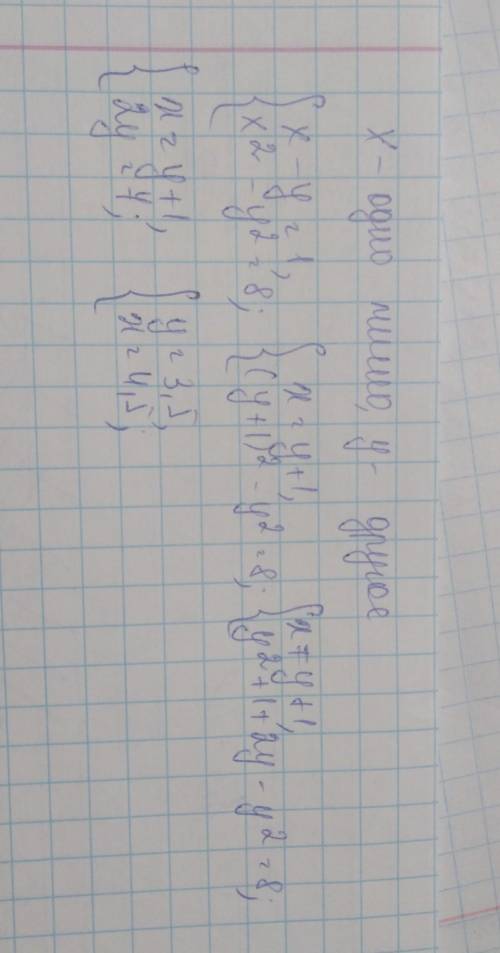 x - одно число, y - другое
{ x - y = 1, x² - y² = 8; { x = y+1, (y+1)² - y² = 8; { x = y+1, y² + 1 + 2y - y² = 8;
{ x = y+1, 2y = 7; { y = 3,5, x = 4,5;